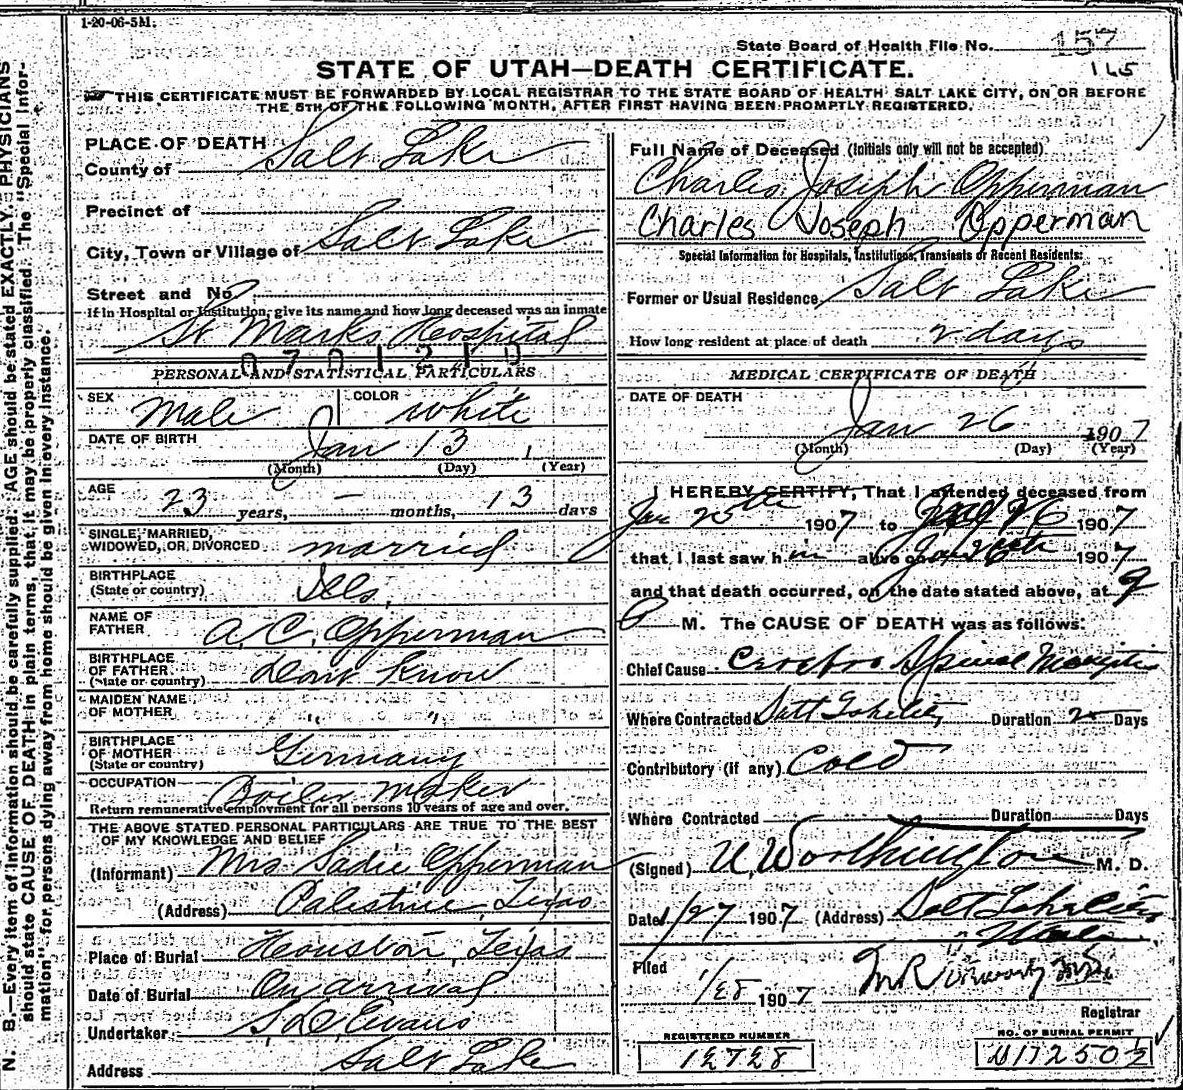 1-20-06-5M.
State Board of Health File No. 157
165
STATE OF UTAH—DEATH CERTIFICATE.
THIS CERTIFICATE MUST BE FORWARDED BY LOCAL REGISTRAR TO THE STATE BOARD OF HEALTH SALT LAKE CITY, ON OR BEFORE
THE 5TH OF THE FOLLOWING MONTH, AFTER FIRST HAVING BEEN PROMPTLY REGISTERED.
PLACE OF DEATH
County of Salt Lake
Precinct of
City, Town or Village of Salt Lake
Street and No.
If in Hospital or Institution, give its name and how long deceased was an inmate
St Marks Hospital
0701210
PERSONAL AND STATISTICAL PARTICULARS
SEX Male COLOR white
DATE OF BIRTH Jan 13,
(Month) (Day) (Year)
AGE
23 years, — months, 13 days
SINGLE, MARRIED,
WIDOWED, OR DIVORCED married
BIRTHPLACE
(State or country) Ills,
NAME OF
FATHER A.C. Opperman
BIRTHPLACE
OF FATHER
(State or country) Dont Know
MAIDEN NAME
OF MOTHER " "
BIRTHPLACE
OF MOTHER
(State or country) Germany
OCCUPATION Boiler Maker
Return remunerative employment for all persons 10 years of age and over.
THE ABOVE STATED PERSONAL PARTICULARS ARE TRUE TO THE BEST
OF MY KNOWLEDGE AND BELIEF
(Informant) Mrs Sadie Opperman
(Address) Palestine, Texas
Place of Burial Houston, Texas
Date of Burial On arrival
Undertaker Evans
Address Salt Lake
Full Name of Deceased (Initials only will not be accepted)
Charles Joseph Opperman
Charles Joseph Opperman
Special Information for Hospitals, Institutions, Transients or Recent Residents:
Former or Usual Residence Salt Lake
How long resident at place of death 2 days
MEDICAL CERTIFICATE OF DEATH
DATE OF DEATH
Jan 26 1907
(Month) (Day) (Year)
I HEREBY CERTIFY, That I attended deceased from
Jan 25th 1907 to Jan 26 1907
that I last saw him alive on Jan 26th 1907
and that death occurred, on the date stated above, at 9
P M. The CAUSE OF DEATH was as follows:
Chief Cause Cerebro Spinal Meningitis
Where Contracted Salt Lake City Duration 2 Days
Contributory (if any) Cold
Where Contracted Duration Days
(Signed) U. Worthington M. D.
Date 1/27 1907 (Address) Salt Lake City
Utah
Filed
1/28 1907
Registrar
REGISTERED NUMBER
12728
NO. OF BURIAL PERMIT
B17250½
N. B.—Every item of information should be carefully supplied. AGE should be stated EXACTLY. PHYSICIANS
should state CAUSE OF DEATH in plain terms, that it may be properly classified. The "Special Infor-
mation" for persons dying away from home should be given in every instance.